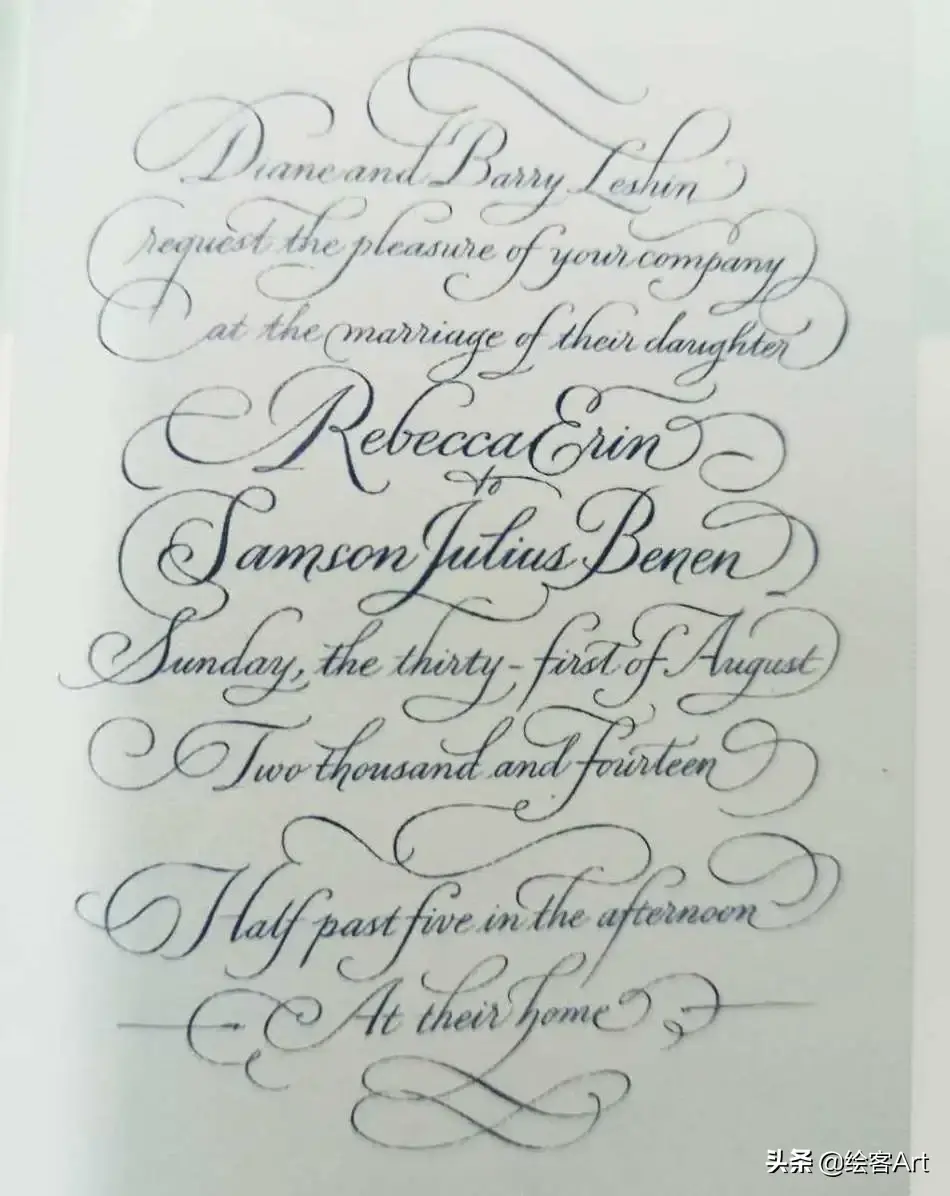 Diane and Barry Leshin
request the pleasure of your company
at the marriage of their daughter
Rebecca Erin
to
Samson Julius Benen
Sunday, the thirty-first of August
Two thousand and fourteen
Half past five in the afternoon
At their home
头条 @绘客Art